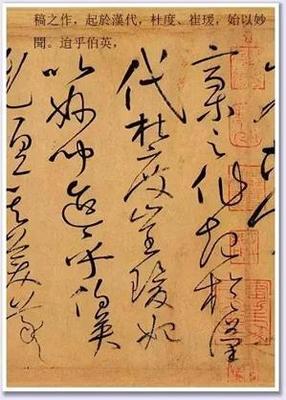 稿之作，起於漢代，杜度、崔瑗，始以妙
聞。迨乎伯英，
稾之作起於漢
代杜度崔瑗始
以妙聞迨乎伯英
其美羲